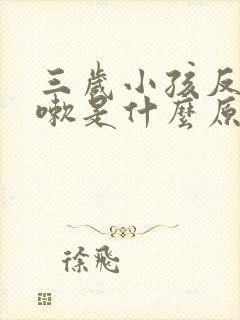 三歲小孩反
嗽是什麼原
徐飛